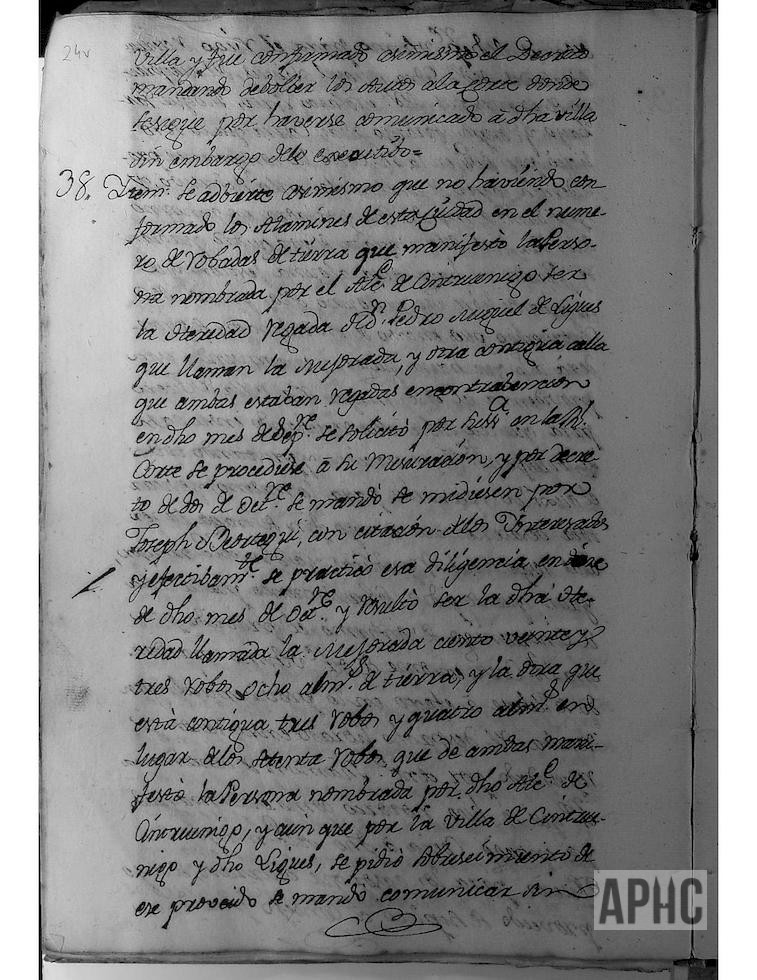 24v
Villa y fue confirmado asimismo el Decreto
mandando debolber los autos a la Corte donde
se sigue por haverse comunicado à dha villa
sin embargo de lo executido=
38. Item. Se adbierte asimismo que no haviendo con
formado los Alamines de esta Ciudad en el nume-
ro de robadas de tierra que manifestò la Perso-
na nombrada por el Alce. de Cintruenigo ser
la eredad regada de Dn. Pedro Miguel de Ligues
que llaman la Mejorada, y otra contigua a ella
que ambas estaban regadas encontrabencion
en dho mes de Sepre. se solicitò por su Sa. en la Rl.
Corte se procediese à su Mesuracion, y por decre-
to de dos de Octre. se mandò se midiesen por
Joseph Beortegui, con citacion de los Interesados
y efectibamte. se practicò esa diligencia en doze
de dho mes de Octre. y resultò ser la dha ete-
redad llamada la Mejorada ciento veinte y
tres robos ocho almds. de tierra, y la otra que
està contigua tres robos y quatro almds. en
lugar de los setenta robos que de ambas mani-
festò la Persona nombrada por dho Alce. de
Cintruenigo, y aunque por la Villa de Cintrue-
nigo y dho Ligues, se pidiò sobreseimiento de
ese proveido se mandò comunicar sin
APHC